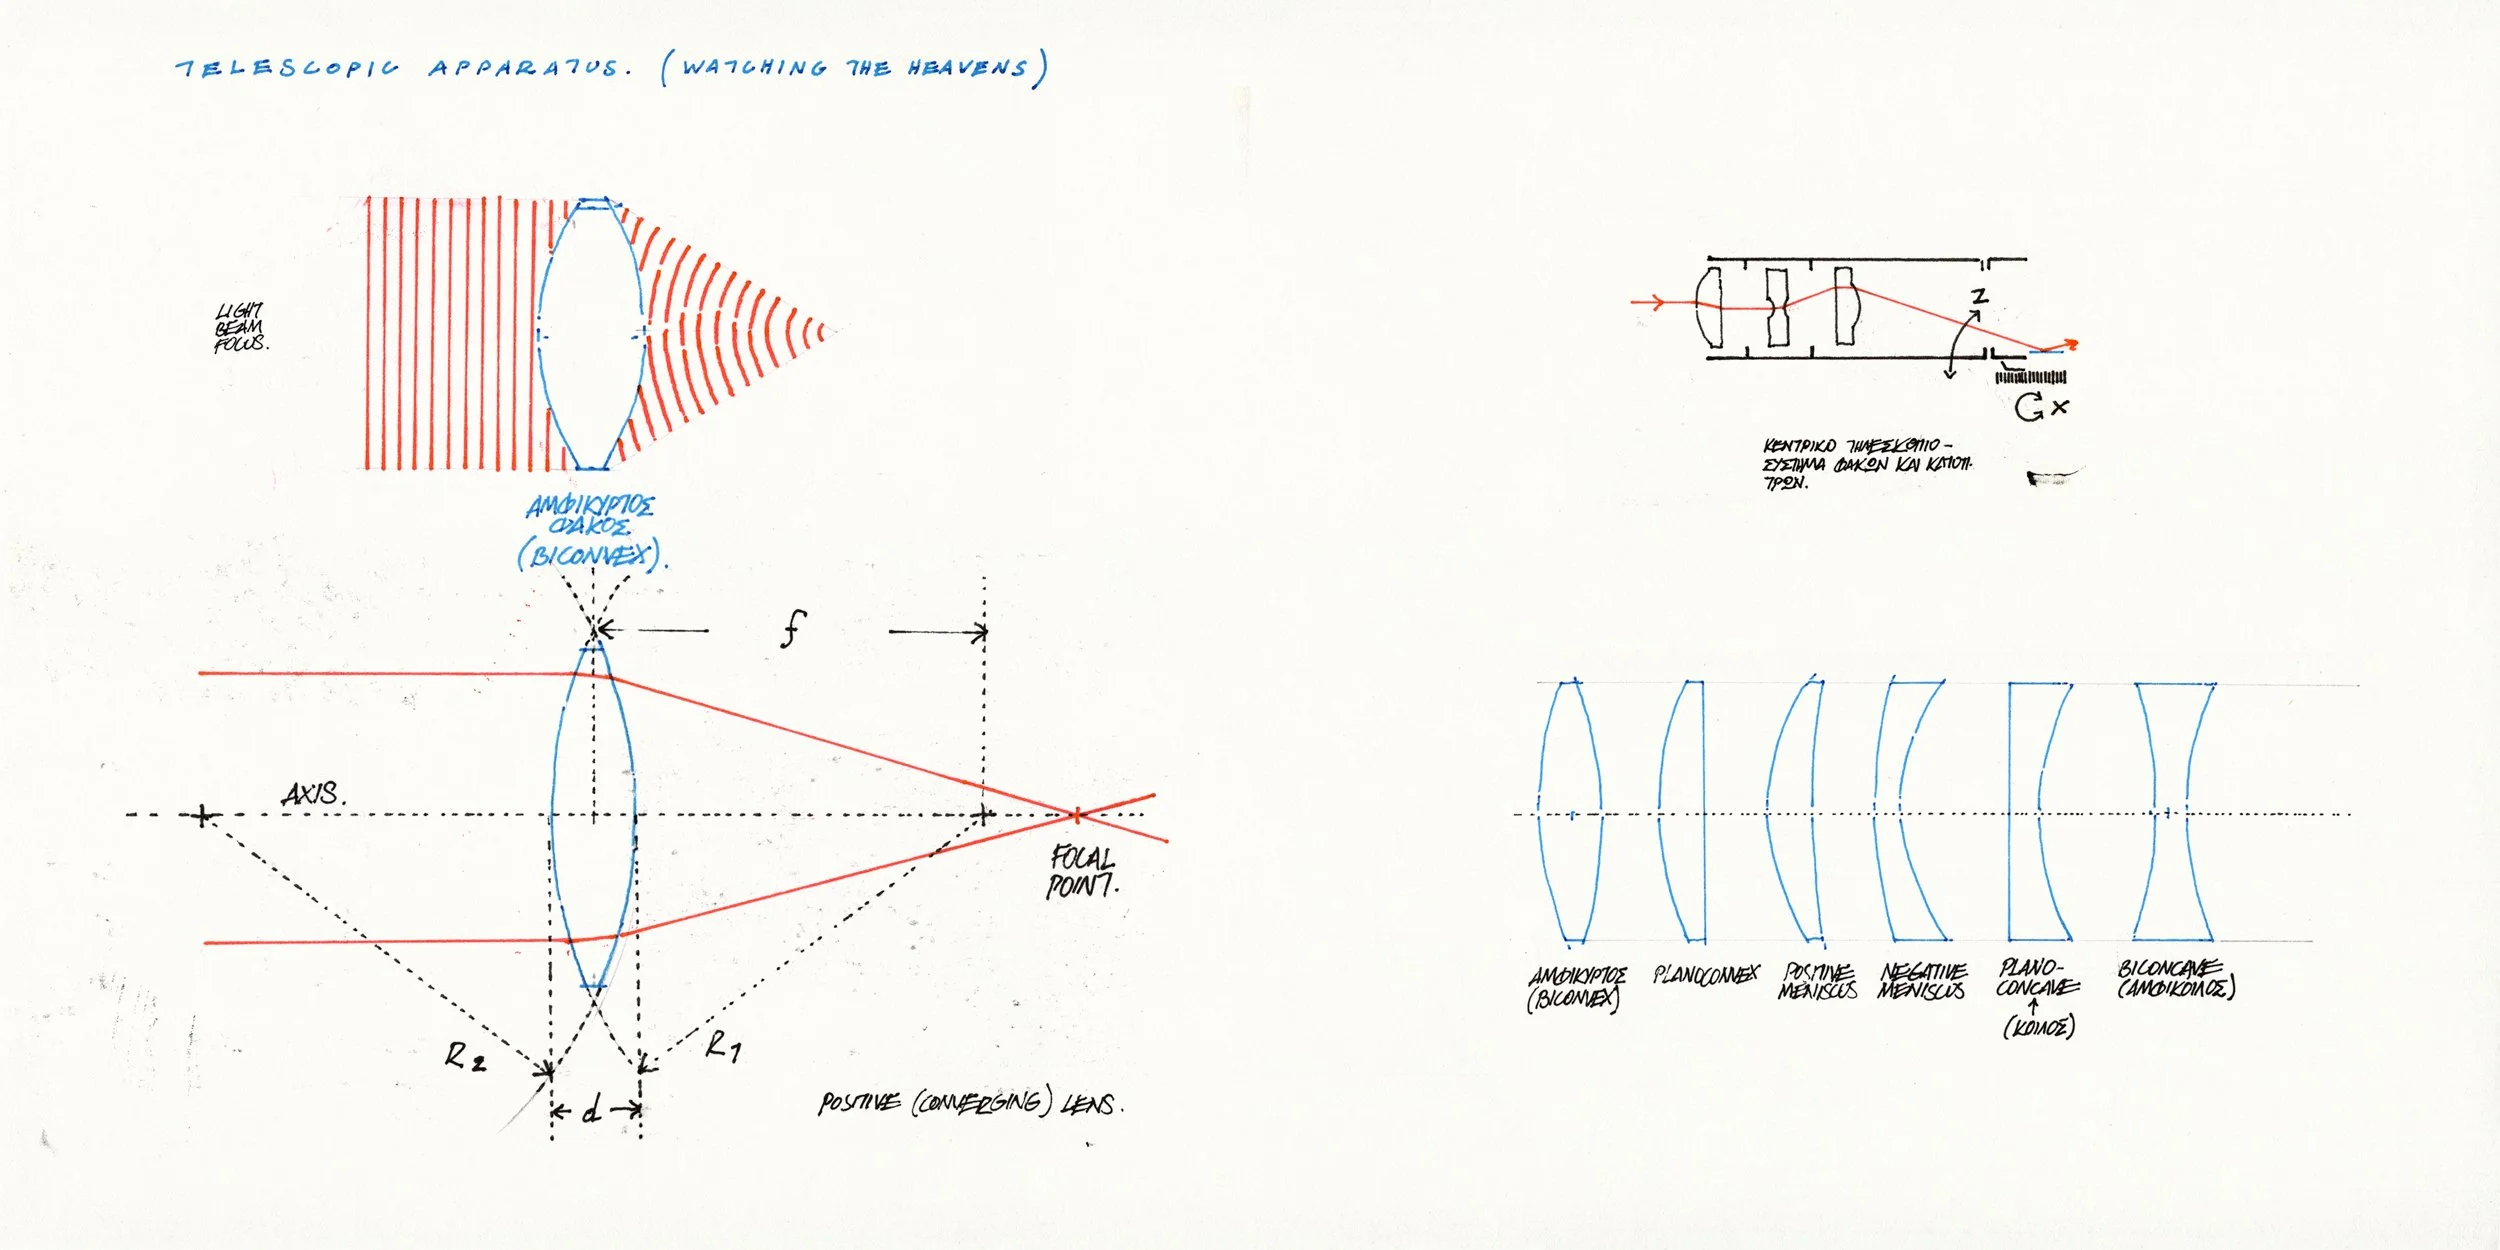 TELESCOPIC APPARATUS. (WATCHING THE HEAVENS)
LIGHT
BEAM
FOCUS.
ΑΜΦΙΚΥΡΤΟΣ
ΦΑΚΟΣ
(BICONVEX).
f
AXIS.
FOCAL
POINT.
R2
R1
d
POSITIVE (CONVERGING) LENS.
Z
X
ΚΕΝΤΡΙΚΟ ΤΗΛΕΣΚΟΠΙΟ –
ΣΥΣΤΗΜΑ ΦΑΚΩΝ ΚΑΙ ΚΑΤΟΠ-
ΤΡΩΝ.
ΑΜΦΙΚΥΡΤΟΣ
(BICONVEX)
PLANOCONVEX
POSITIVE
MENISCUS
NEGATIVE
MENISCUS
PLANO-
CONCAVE
↑
(ΚΟΙΛΟΣ)
BICONCAVE
(ΑΜΦΙΚΟΙΛΟΣ)